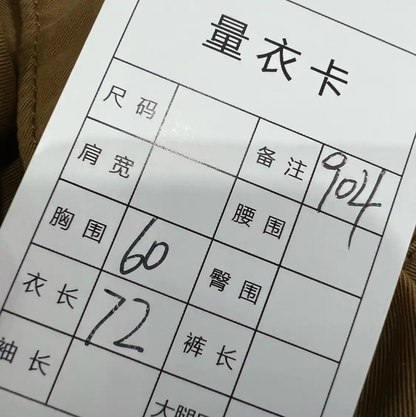 量衣卡
尺码 备注 904
肩宽 腰围
胸围 60 臀围
衣长 72 裤长
袖长 大腿